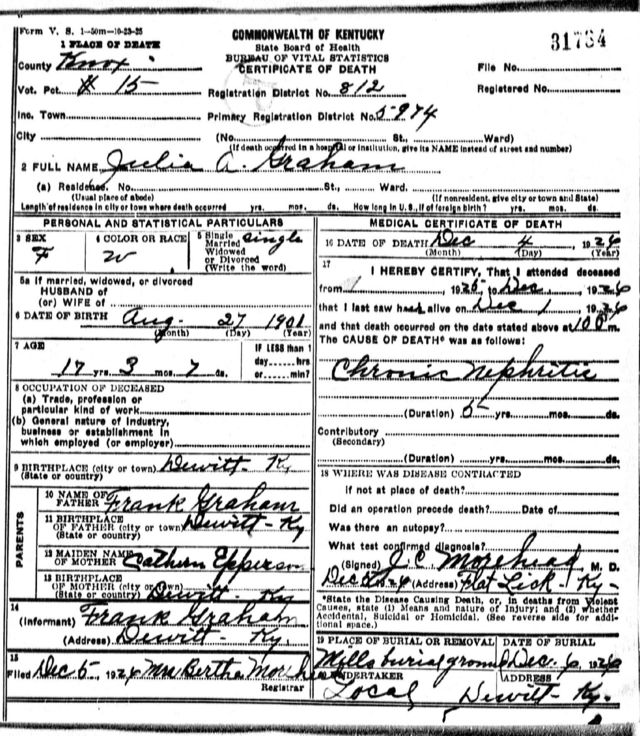 Form V. S. 1-50m-10-23-25
1 PLACE OF DEATH
County Knox
Vot. Pct. # 15
Inc. Town
City
COMMONWEALTH OF KENTUCKY
State Board of Health
BUREAU OF VITAL STATISTICS
CERTIFICATE OF DEATH
Registration District No. 812
Primary Registration District No. 5974
31734
File No.
Registered No.
(No. St., Ward)
(If death occurred in a hospital or institution, give its NAME instead of street and number)
2 FULL NAME Julia A. Graham
(a) Residence. No. St., Ward.
(Usual place of abode) (If nonresident, give city or town and State)
Length of residence in city or town where death occurred yrs. mos. ds. How long in U. S., if of foreign birth? yrs. mos. ds.
PERSONAL AND STATISTICAL PARTICULARS
3 SEX F
4 COLOR OR RACE W
5 Single Married Widowed or Divorced (Write the word) Single
5a If married, widowed, or divorced
HUSBAND of
(or) WIFE of
6 DATE OF BIRTH Aug. 27 1901
(Month) (Day) (Year)
7 AGE 17 yrs. 3 mos. 7 ds.
IF LESS than 1
day hrs
or min?
8 OCCUPATION OF DECEASED
(a) Trade, profession or
particular kind of work
(b) General nature of industry,
business or establishment in
which employed (or employer)
9 BIRTHPLACE (city or town) Dewitt - Ky
(State or country)
PARENTS
10 NAME OF FATHER Frank Graham
11 BIRTHPLACE OF FATHER (city or town) Dewitt - Ky
(State or country)
12 MAIDEN NAME OF MOTHER Cathern Epperson
13 BIRTHPLACE OF MOTHER (city or town) Dewitt Ky
(State or country)
14
(Informant) Frank Graham
(Address) Dewitt - Ky.
15
Filed Dec 5, 1926 Mrs Bertha
Registrar
MEDICAL CERTIFICATE OF DEATH
16 DATE OF DEATH Dec 4, 1926
(Month) (Day) (Year)
17
I HEREBY CERTIFY, That I attended deceased
from 1925, to Dec, 1926
that I last saw alive on Dec 1, 1926
and that death occurred on the date stated above at m.
The CAUSE OF DEATH* was as follows:
Chronic Nephritis
(Duration) 5 yrs. mos. ds.
Contributory
(Secondary)
(Duration) yrs. mos. ds.
18 WHERE WAS DISEASE CONTRACTED
If not at place of death?
Did an operation precede death? Date of
Was there an autopsy?
What test confirmed diagnosis?
(Signed) J. C. Morehead M. D.
Dec (Address) Flat Lick - Ky.
*State the Disease Causing Death, or, in deaths from Violent
Causes, state (1) Means and nature of Injury; and (2) Whether
Accidental, Suicidal or Homicidal. (See reverse side for addi-
tional space.)
19 PLACE OF BURIAL OR REMOVAL Mills burial ground
DATE OF BURIAL Dec. 6, 1926
UNDERTAKER Local
ADDRESS Dewitt - Ky.